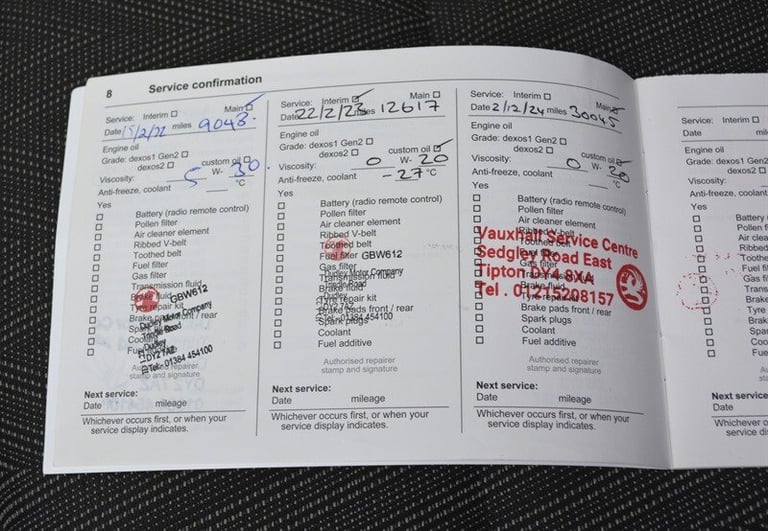 8 Service confirmation
Service: Interim ☐ Main ☑
Date 15/2/22 miles 9048
Engine oil
Grade: dexos1 Gen2 ☐
dexos2 ☐ custom oil ☑
Viscosity: 5 W- 30
Anti-freeze, coolant ___ °C
Yes
☐ Battery (radio remote control)
☐ Pollen filter
☐ Air cleaner element
☐ Ribbed V-belt
☐ Toothed belt
☐ Fuel filter
☐ Gas filter
☐ Transmission fluid
☐ Brake fluid
☐ Tyre repair kit
☐ Brake pads front / rear
☐ Spark plugs
☐ Coolant
☐ Fuel additive
GBW612
Dudley Motor Company
Trindle Road
Dudley
DY2 7AZ
Tel: 01384 454100
Authorised repairer
stamp and signature
Next service:
Date mileage
Whichever occurs first, or when your
service display indicates.
Service: Interim ☑ Main ☐
Date 22/2/23 miles 12617
Engine oil
Grade: dexos1 Gen2 ☐
dexos2 ☐ custom oil ☑
Viscosity: 0 W- 20
Anti-freeze, coolant -27 °C
Yes
☐ Battery (radio remote control)
☐ Pollen filter
☐ Air cleaner element
☐ Ribbed V-belt
☐ Toothed belt
☐ Fuel filter
☐ Gas filter
☐ Transmission fluid
☐ Brake fluid
☐ Tyre repair kit
☐ Brake pads front / rear
☐ Spark plugs
☐ Coolant
☐ Fuel additive
GBW612
Dudley Motor Company
Trindle Road
Dudley
DY2 7AZ
Tel: 01384 454100
Authorised repairer
stamp and signature
Next service:
Date mileage
Whichever occurs first, or when your
service display indicates.
Service: Interim ☐ Main ☑
Date 2/12/24 miles 30045
Engine oil
Grade: dexos1 Gen2 ☐
dexos2 ☐ custom oil ☑
Viscosity: 0 W- 20
Anti-freeze, coolant ___ °C
Yes
☐ Battery (radio remote control)
☐ Pollen filter
☐ Air cleaner element
☐ Ribbed V-belt
☐ Toothed belt
☐ Fuel filter
☐ Gas filter
☐ Transmission fluid
☐ Brake fluid
☐ Tyre repair kit
☐ Brake pads front / rear
☐ Spark plugs
☐ Coolant
☐ Fuel additive
Vauxhall Service Centre
Sedgley Road East
Tipton DY4 8XA
Tel . 01215208157
Authorised repairer
stamp and signature
Next service:
Date mileage
Whichever occurs first, or when your
service display indicates.
Service: Interim ☐
Date mi
Engine oil
Grade: dexos1 G
dexos2 ☐
Viscosity:
Anti-freeze, coolant
Yes
☐ Battery (r
☐ Pollen f
☐ Air clea
☐ Ribbed
☐ Toothe
☐ Fuel f
☐ Gas f
☐ Trans
☐ Brake
☐ Tyre
☐ Brak
☐ Spar
☐ Coo
☐ Fue
Next service:
Date
Whichever o
service di